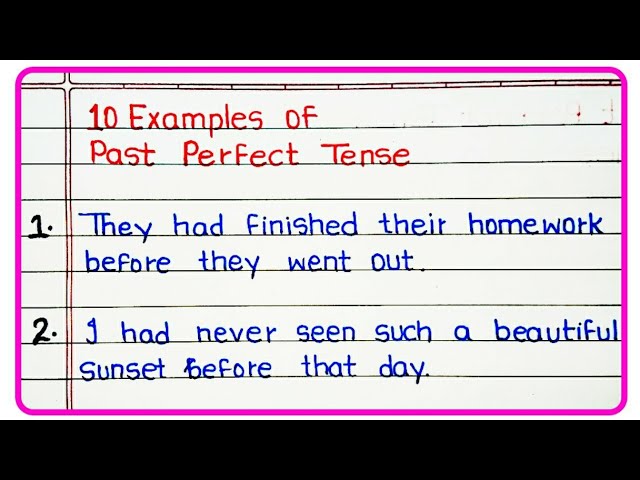 10 Examples of
Past Perfect Tense
1. They had finished their homework
before they went out.
2. I had never seen such a beautiful
sunset before that day.